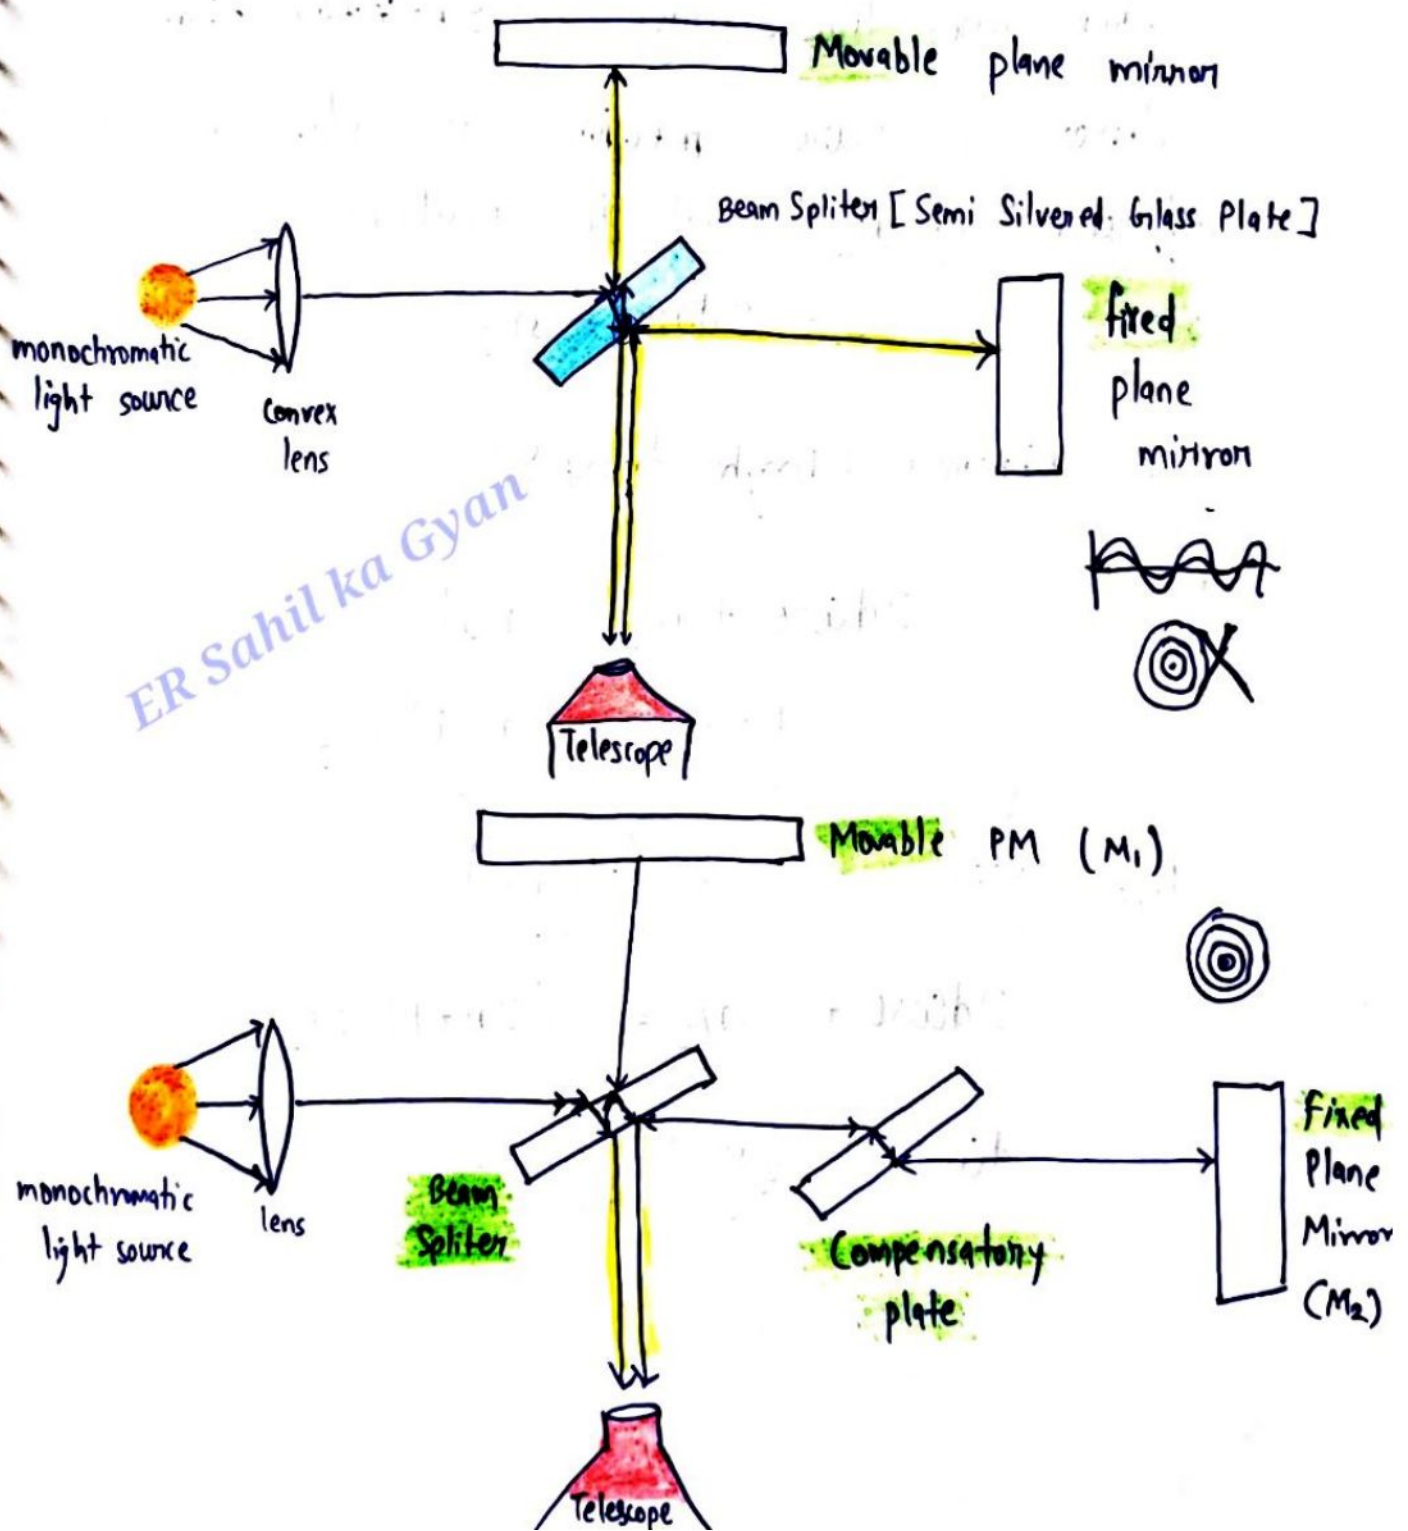 Movable plane mirror
Beam Spliter [Semi Silvered Glass Plate]
fixed
plane
mirror
monochromatic
light source
Convex
lens
ER Sahil ka Gyan
Telescope
Movable PM (M₁)
monochromatic
light source
lens
Beam
Spliter
Compensatory
plate
Fixed
Plane
Mirror
(M₂)
Telescope